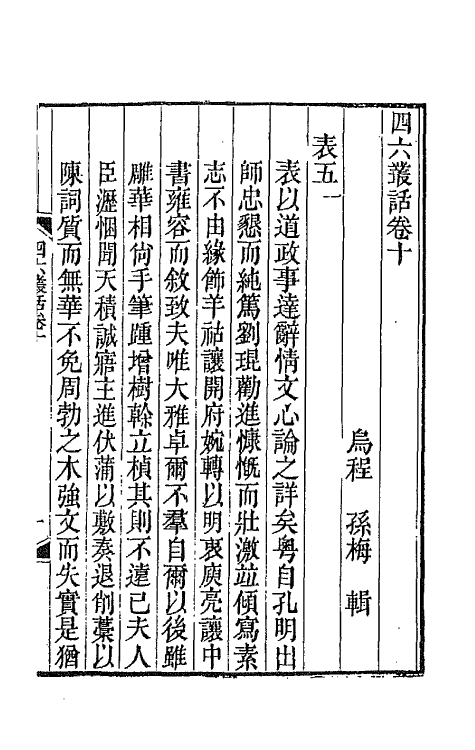 四六叢話卷十
烏程 孫梅 輯
表五一
表以道政事達辭情文心論之詳矣粵自孔明出
師忠懇而純篤劉琨勸進慷慨而壯激竝傾寫素
志不由緣飾羊祜讓開府婉轉以明衷庾亮讓中
書雍容而敘致夫唯大雅卓爾不羣自爾以後雖
雕華相尙手筆踵增樹榦立楨其則不遠已夫人
臣瀝悃聞天積誠寤主進伏蒲以敷奏退削藁以
陳詞質而無華不免周勃之木強文而失實是猶
四六叢話卷十
一